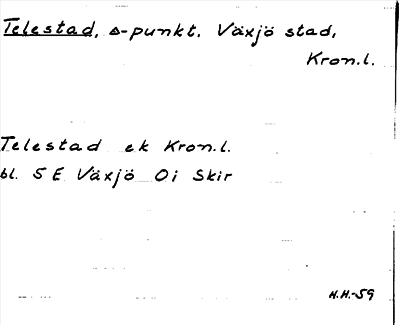 Telestad, △-punkt. Växjö stad,
Kron.l.
Telestad ek Kron.l.
bl. 5 E Växjö Oi Skir
H.H.-59